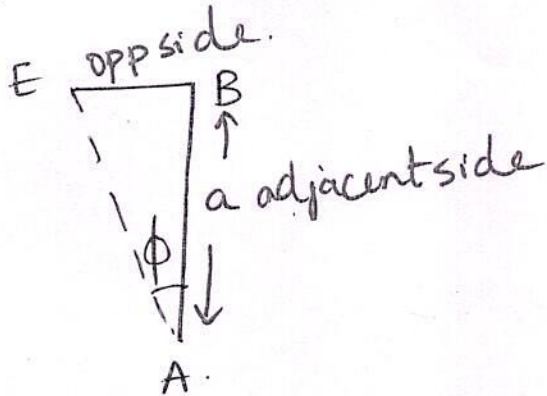 opp side.
E
B
a adjacent side
ϕ
A.